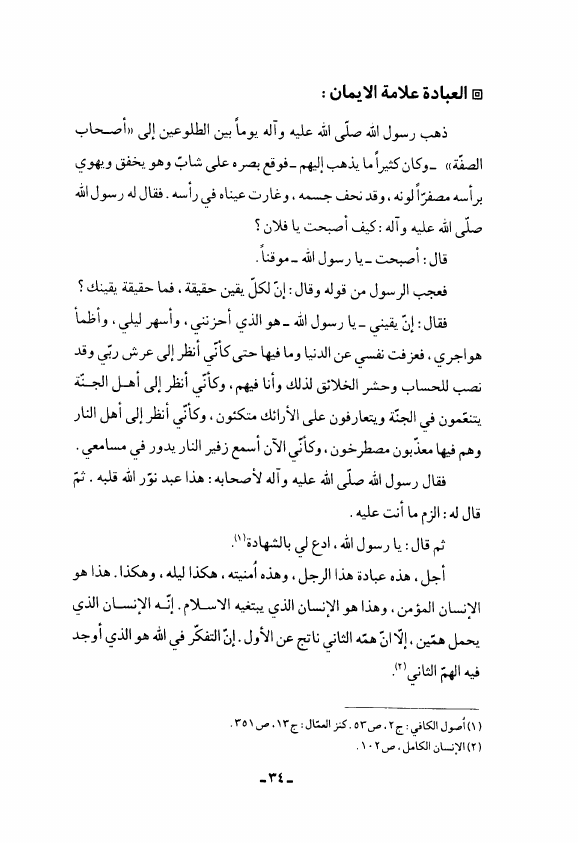 ▣ العبادة علامة الايمان :
ذهب رسول الله صلّى الله عليه وآله يوماً بين الطلوعين إلى «أصـحاب
الصفّة» ـ وكان كثيراً ما يذهب إليهم ـ فوقع بصره على شابّ وهو يخفق ويهوي
برأسه مصفرّاً لونه ، وقد نحف جسمه ، وغارت عيناه في رأسه . فقال له رسول الله
صلّى الله عليه وآله : كيف أصبحت يا فلان ؟
قال : أصبحت ـ يا رسول الله ـ موقناً .
فعجب الرسول من قوله وقال : إنّ لكلّ يقين حقيقة ، فما حقيقة يقينك ؟
فقال : إنّ يقيني ـ يا رسول الله ـ هو الذي أحزنني ، وأسهر ليلي ، وأظمأ
هواجري ، فعزفت نفسي عن الدنيا وما فيها حتى كأنّي أنظر إلى عرش ربّي وقد
نصب للحساب وحشر الخلائق لذلك وأنا فيهم ، وكأنّي أنظر إلى أهـل الجـنّة
يتنعّمون في الجنّة ويتعارفون على الأرائك متكئون ، وكأنّي أنظر إلى أهل النار
وهم فيها معذّبون مصطرخون ، وكأنّي الآن أسمع زفير النار يدور في مسامعي .
فقال رسول الله صلّى الله عليه وآله لأصحابه : هذا عبد نوّر الله قلبه . ثمّ
قال له : الزم ما أنت عليه .
ثم قال : يا رسول الله ، ادع لي بالشهادة(١).
أجل ، هذه عبادة هذا الرجل ، وهذه أمنيته ، هكذا ليله ، وهكذا . هذا هو
الإنسان المؤمن ، وهذا هو الإنسان الذي يبتغيه الاسـلام . إنّـه الإنسـان الذي
يحمل همّين ، إلّا انّ همّه الثاني ناتج عن الأول . إنّ التفكّر في الله هو الذي أوجد
فيه الهمّ الثاني(٢).
(١) أصول الكافي : ج٢ ، ص٥٣ . كنز العمّال : ج١٣ ، ص٣٥١ .
(٢) الإنسان الكامل ، ص١٠٢ .
ـ ٣٤ ـ